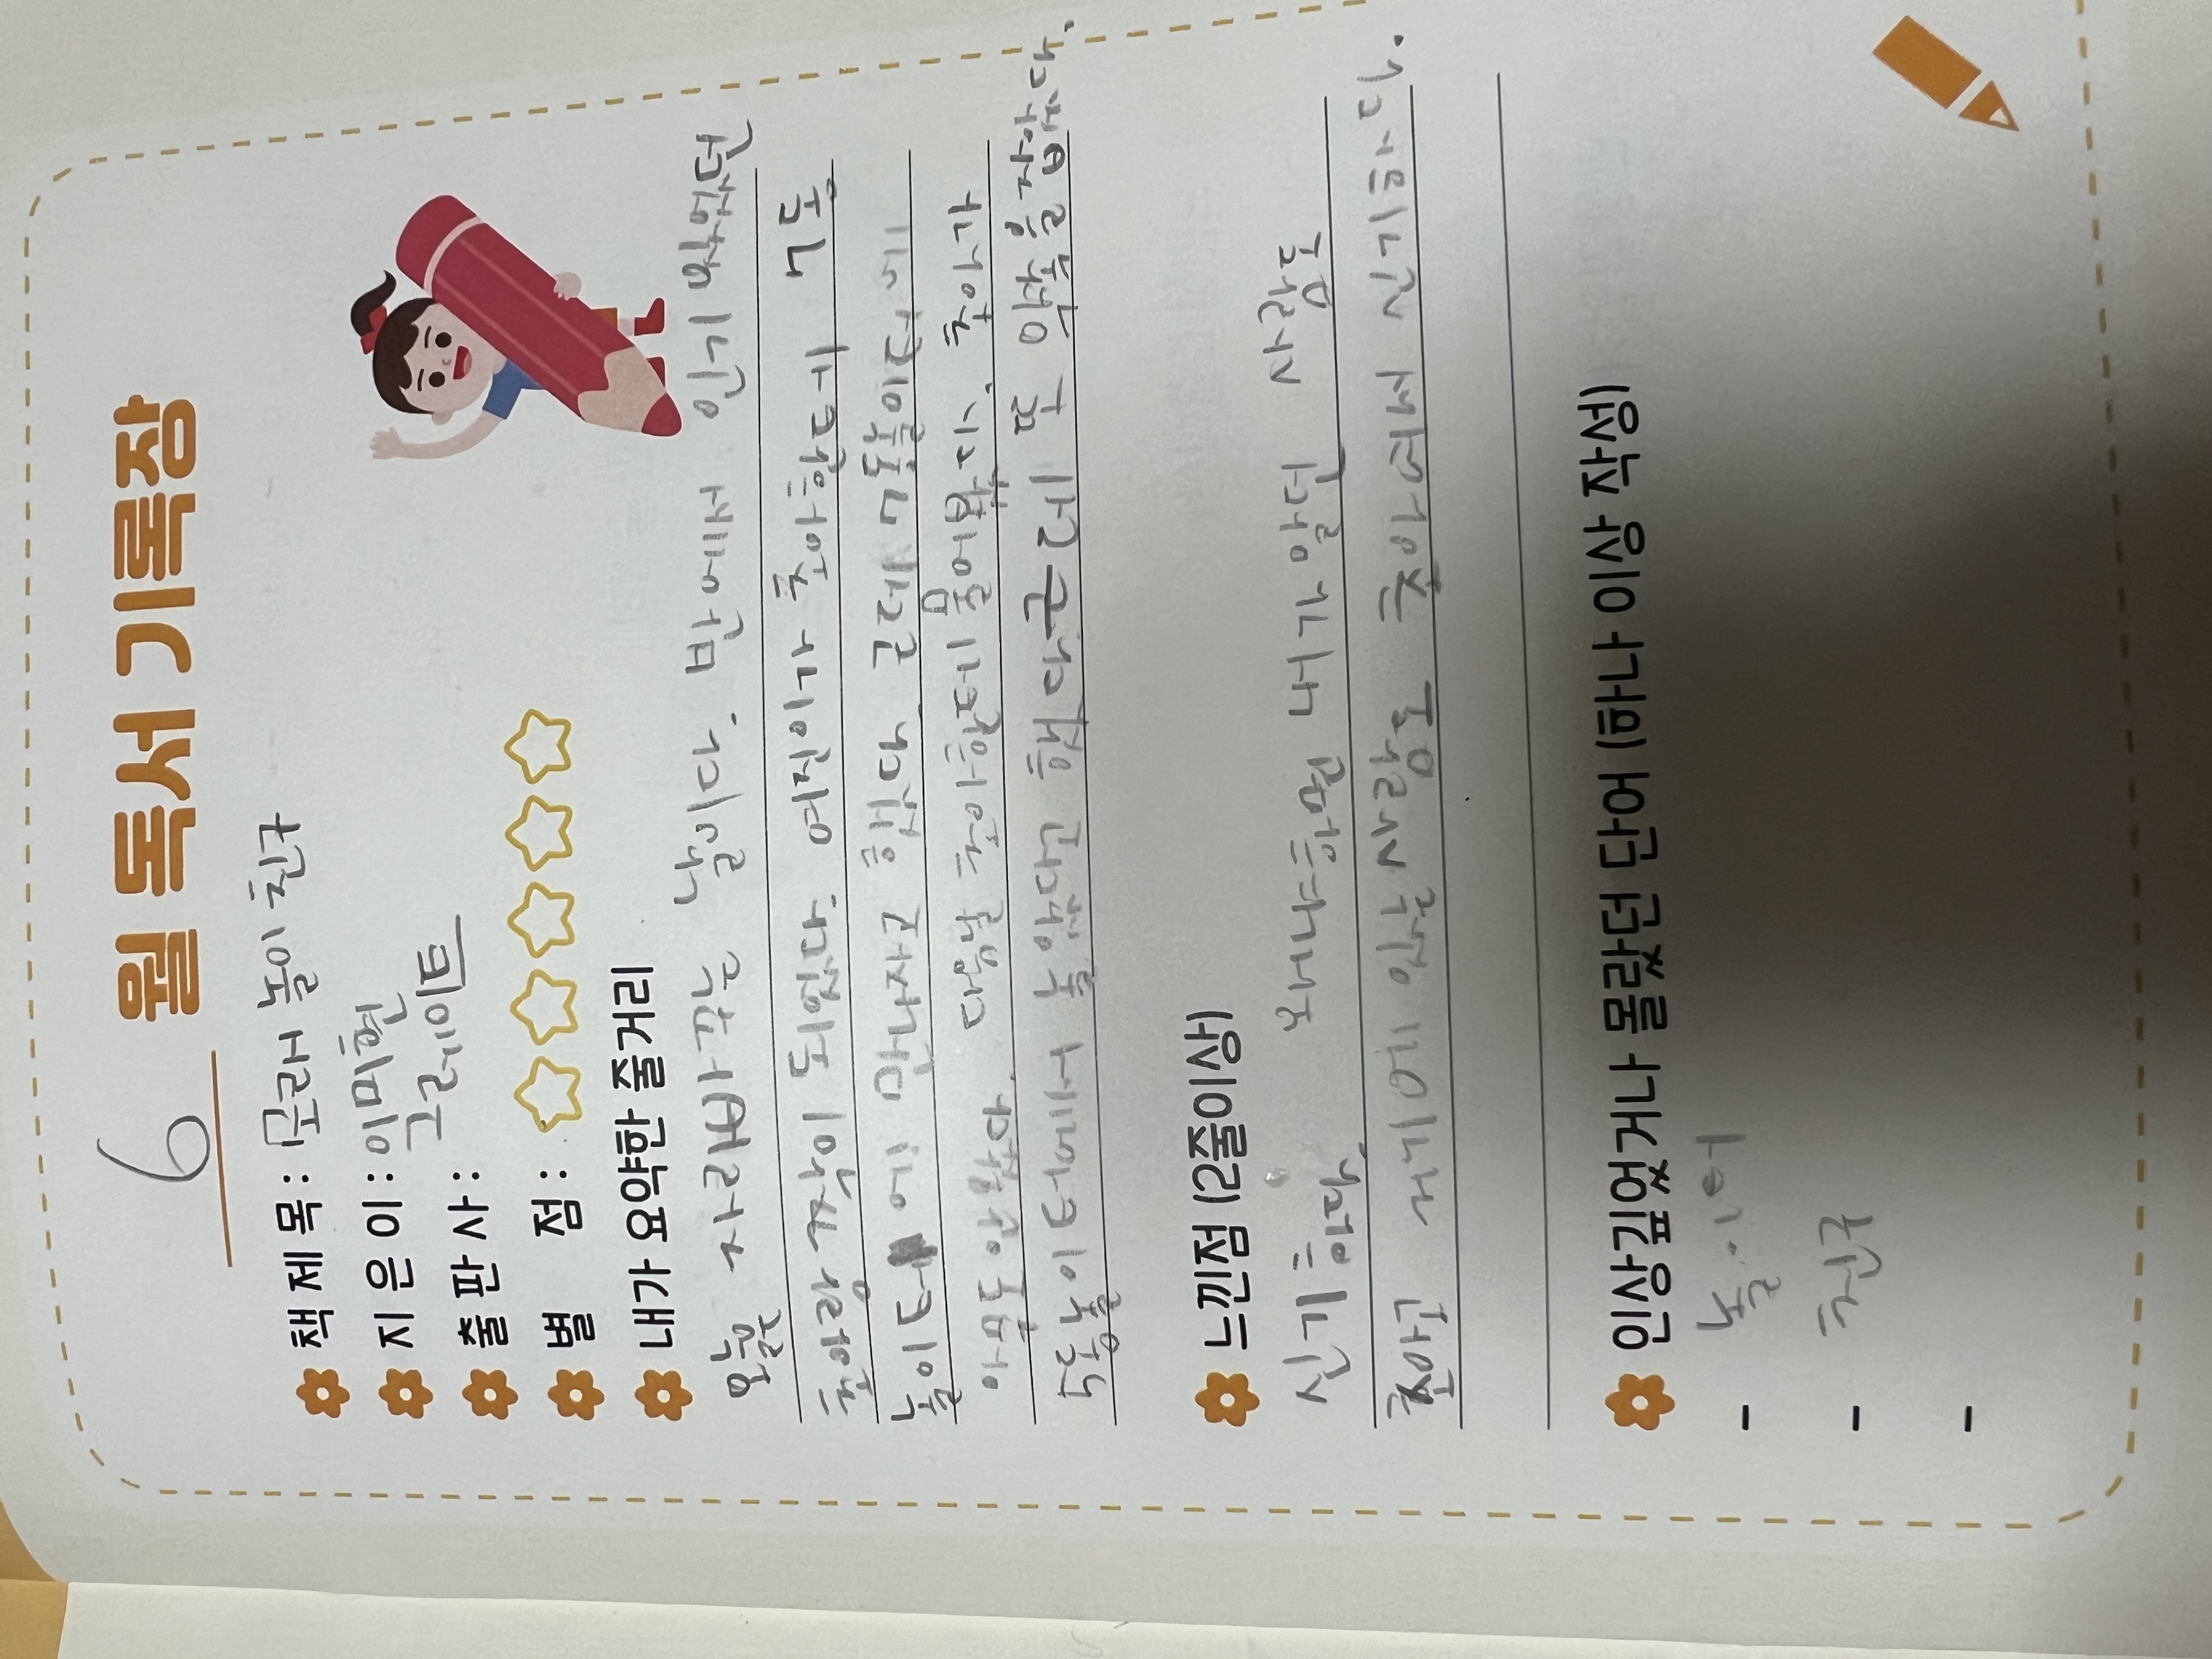 6 월 독서 기록장
책 제 목 : 모래 놀이 친구
지 은 이 : 이미현
출 판 사 : 그레이트
별 점 :
내가 요약한 줄거리
오늘 자리바꾸는 날이다. 반에서 인기 있었던
초아랑 짝이 되었다. 여진이가 초아한테 7동
놀이터에 만나자고 했다. 근데 7동놀이터에
아무도 안 왔다. 다음날 초아한테 물어봤다. 초아가
5동놀이터에서 놀았다고 했다. 근데 또 약속을 잡았다.
느낀점 (2줄이상)
신기하다. 왜냐하면 내가 알던 사람도
초아고 거기에 있는 사람도 초아여서 신기하다.
인상깊었거나 몰랐던 단어 (하나 이상 작성)
- 놀이터
- 친구
-